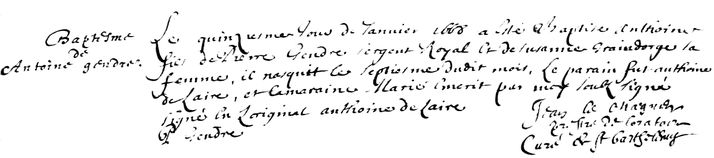 Baptesme
de
Antoine gendre
Le quinziesme Jour de Janvier 1668 a esté Baptise Anthoine
fils de Pierre Gendre sergent Royal et de susanne Graindorge sa
femme, il nasquit le septiesme dudit mois, Le parain fut anthoine
de Laire, et la maraine Marie par moy soubsigné
signé En L'original anthoine de Laire
P Gendre
Jean le
prestre de Loratoire
Curé de St barthelemy